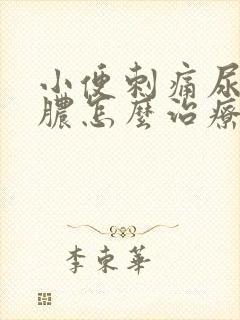 小便刺痛尿
膿怎麼治療
李東華